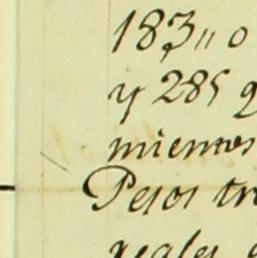 183,, o
y 285 q
mientos
Pesos tre
reales